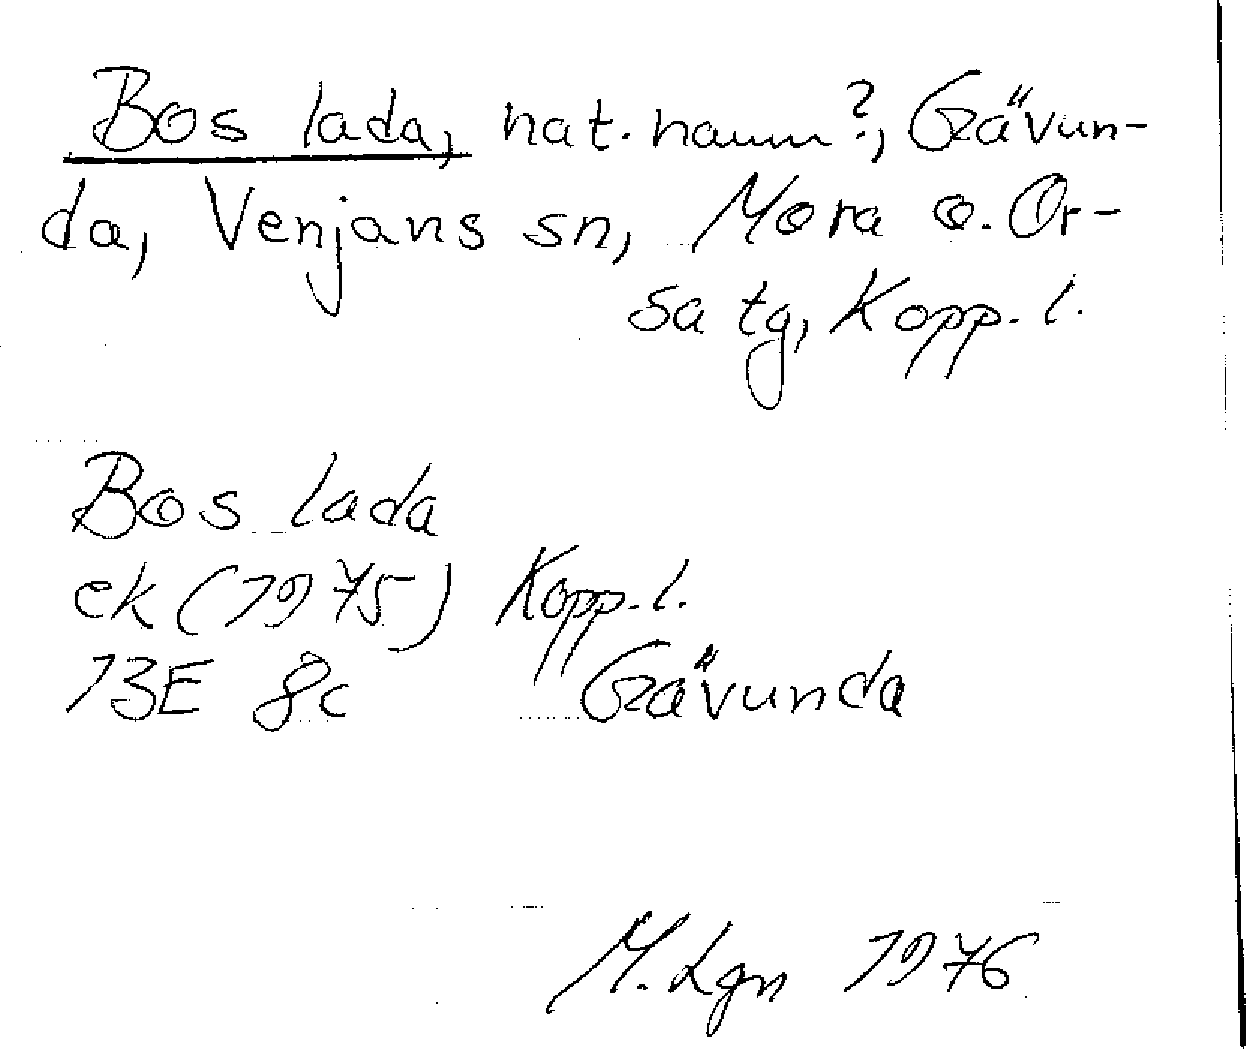 Bos lada, nat.namn?, Gävun-
da, Venjans sn, Mora o. Or-
sa tg, Kopp. l.
Bos lada
ek (1975) Kopp. l.
13E 8c Gävunda
M. Lgn 1976